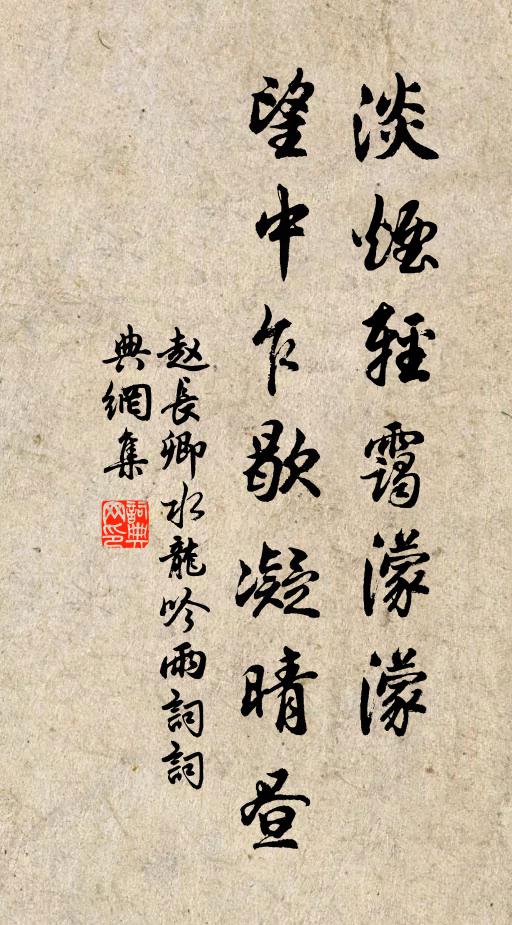 淡煙輕靄濛濛
望中乍歇凝晴昼
赵長卿水龍吟雨詞詞
典網集
詞典
网印